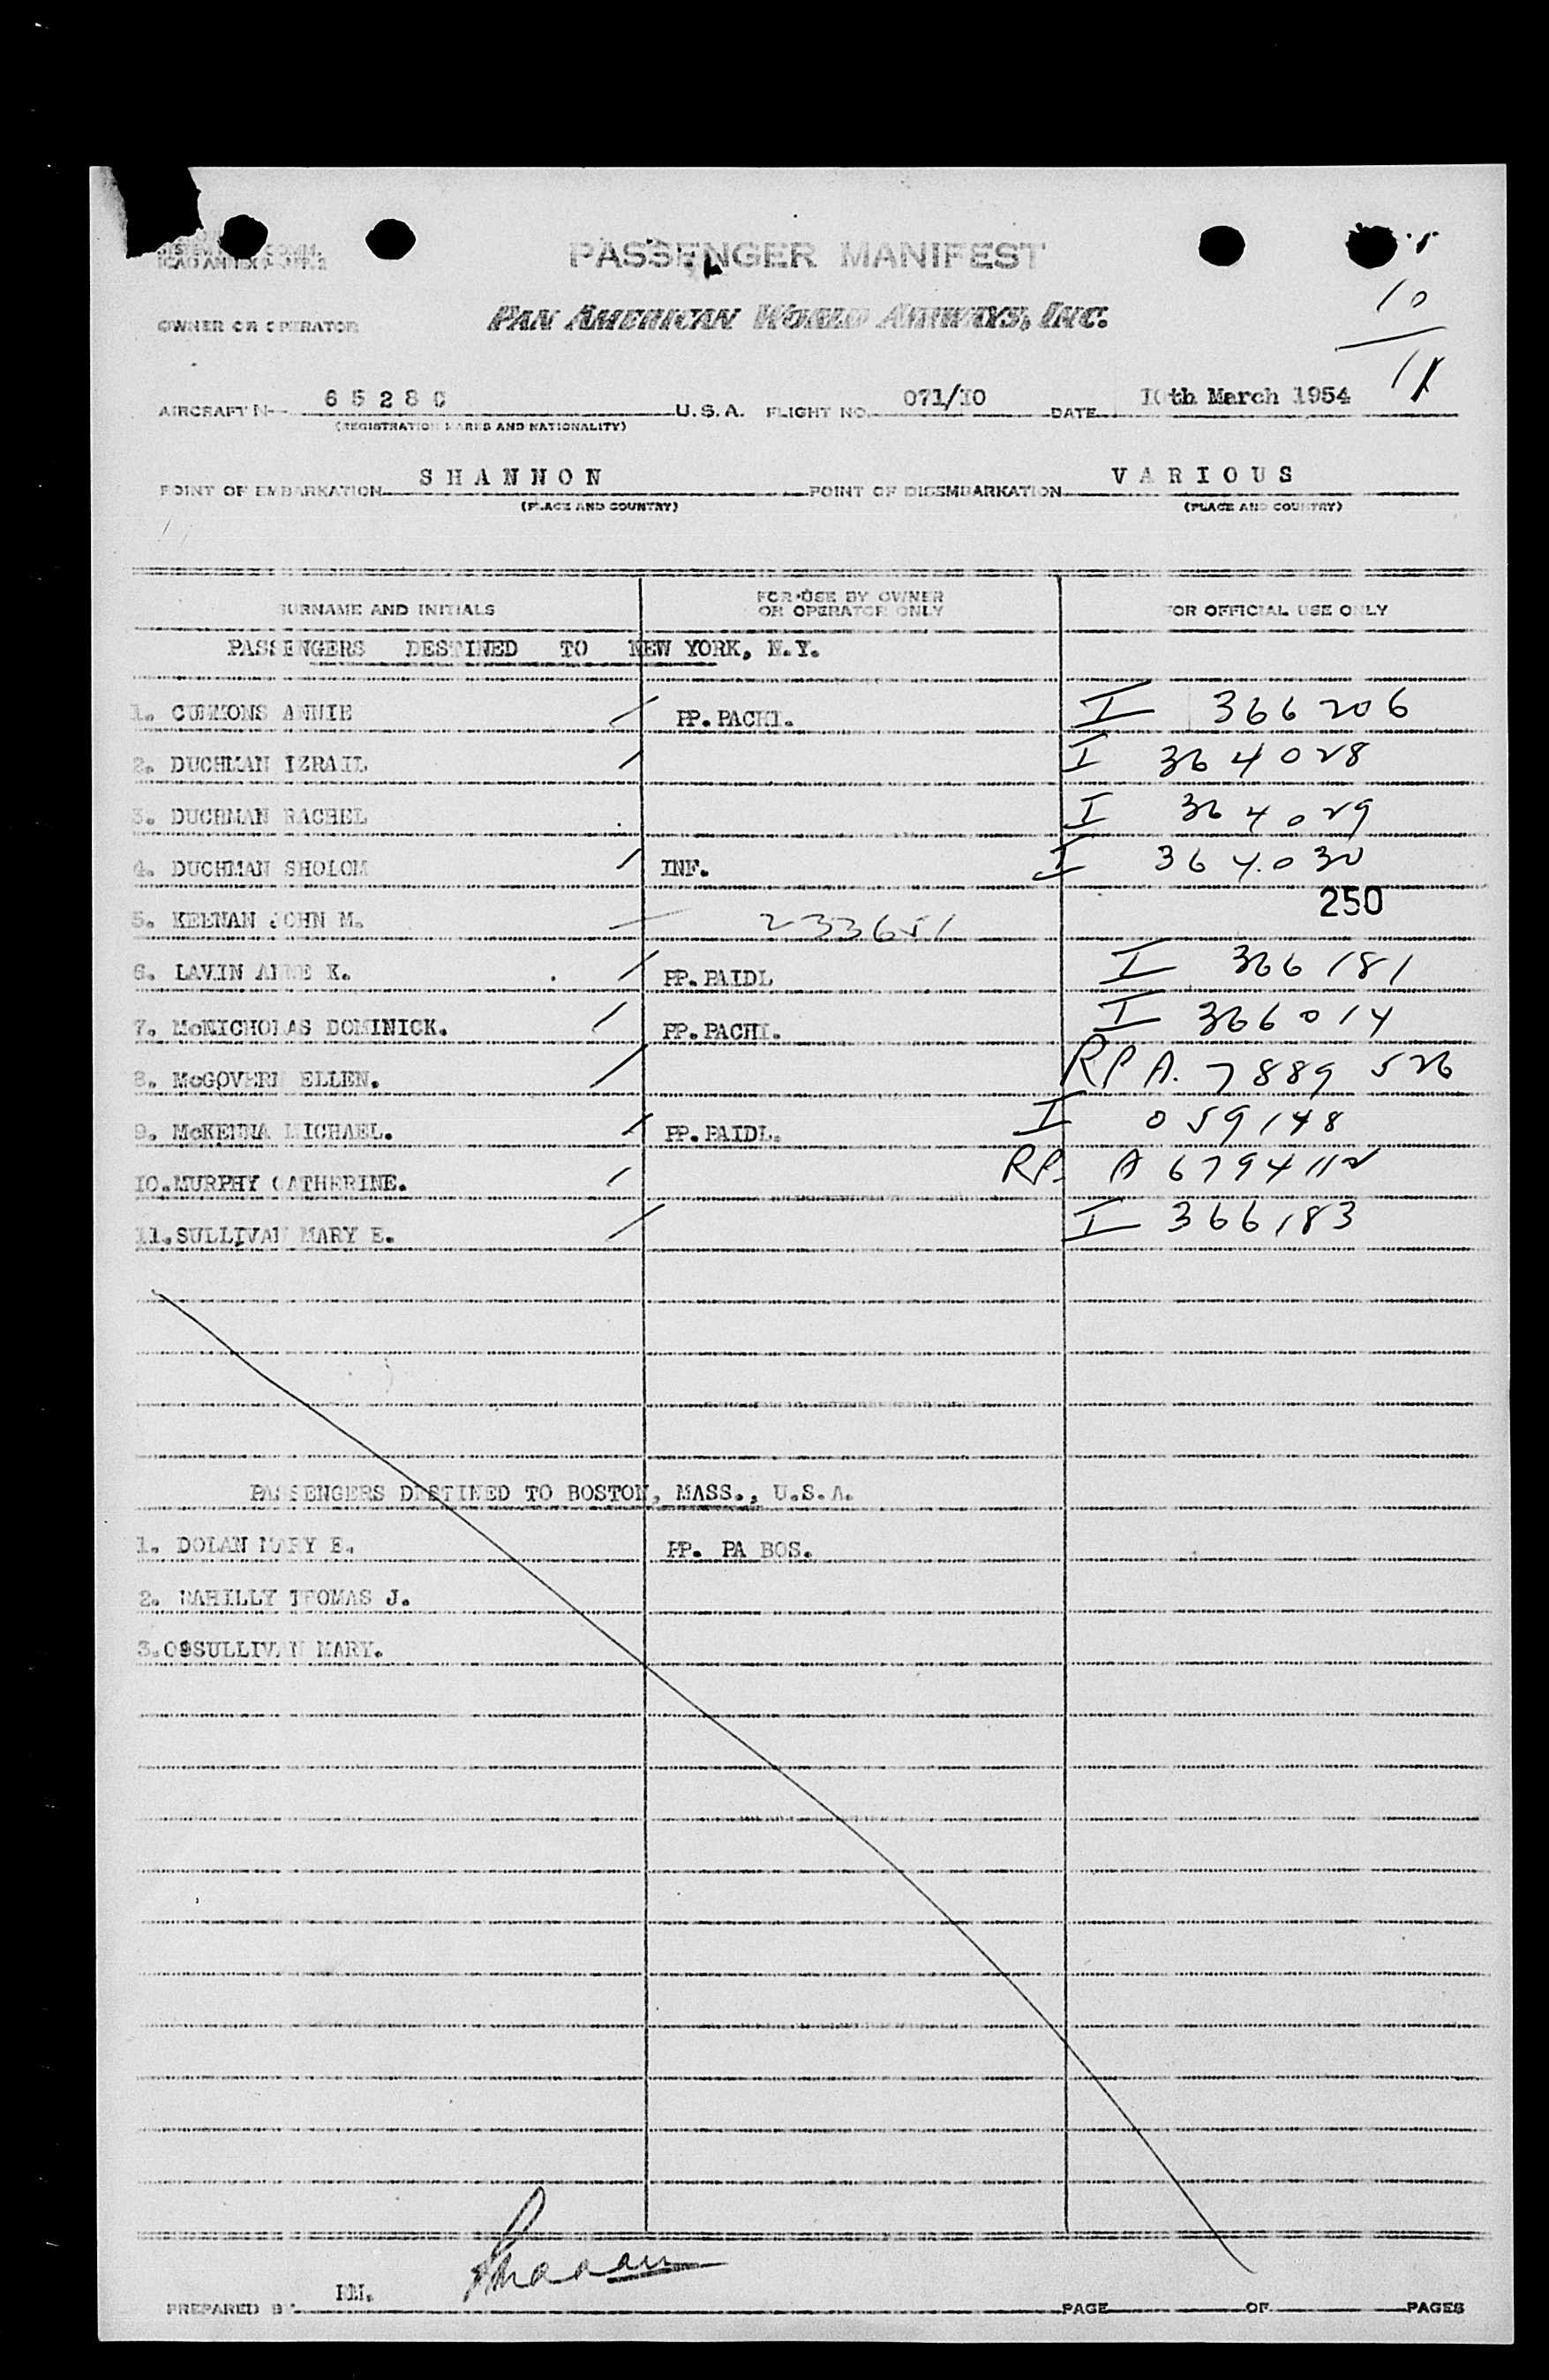 PASSENGER MANIFEST
OWNER OR OPERATOR PAN AMERICAN WORLD AIRWAYS, INC.
10
11
AIRCRAFT N- 6 5 2 8 C U.S.A. FLIGHT NO. 071/10 DATE 10th March 1954
(REGISTRATION MARKS AND NATIONALITY)
POINT OF EMBARKATION S H A N N O N POINT OF DISEMBARKATION V A R I O U S
(PLACE AND COUNTRY) (PLACE AND COUNTRY)
SURNAME AND INITIALS FOR USE BY OWNER OR OPERATOR ONLY FOR OFFICIAL USE ONLY
PASSENGERS DESTINED TO NEW YORK, N.Y.
1. CUMMONS ANNIE PP.PACHI. I 366206
2. DUCHMAN IZRAIL I 364028
3. DUCHMAN RACHEL I 364029
4. DUCHMAN SHOLOM INF. I 364030
250
5. KEENAN JOHN M. 233651
6. LAVIN ANNE K. PP.PAIDL I 366181
7. McNICHOLAS DOMINICK. PP.PACHI. I 366014
8. McGOVERN ELLEN. RP A. 7889 526
9. McKENNA MICHAEL. PP.PAIDL. I 059148
10.MURPHY CATHERINE. RP. A 6794112
11.SULLIVAN MARY E. I 366183
PASSENGERS DESTINED TO BOSTON, MASS., U.S.A.
1. DOLAN MARY E. PP. PA BOS.
2. RAHILLY THOMAS J.
3.OSSULLIVAN MARY.
PREPARED BY PAGE OF PAGES